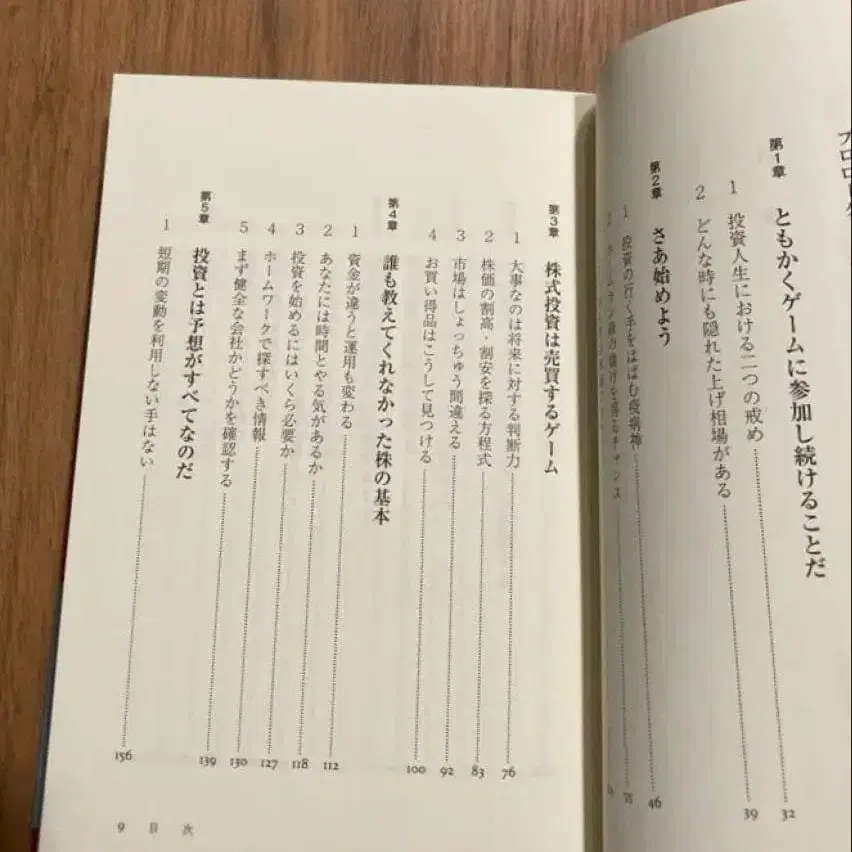 プロローグ
第1章 ともかくゲームに参加し続けることだ
1 投資人生における二つの戒め 32
2 どんな時にも隠れた上げ相場がある 39
第2章 さあ始めよう
1 投資の行く手をはばむ疫病神 46
2 ホームラン級の儲けを得るチャンス
第3章 株式投資は売買するゲーム
1 大事なのは将来に対する判断力 76
2 株価の割高・割安を探る方程式 83
3 市場はしょっちゅう間違える 92
4 お買い得品はこうして見つける 100
第4章 誰も教えてくれなかった株の基本
1 資金が違うと運用も変わる 112
2 あなたには時間とやる気があるか 118
3 投資を始めるにはいくら必要か 127
4 ホームワークで探すべき情報 130
5 まず健全な会社かどうかを確認する 139
第5章 投資とは予想がすべてなのだ
1 短期の変動を利用しない手はない 156
9 目 次